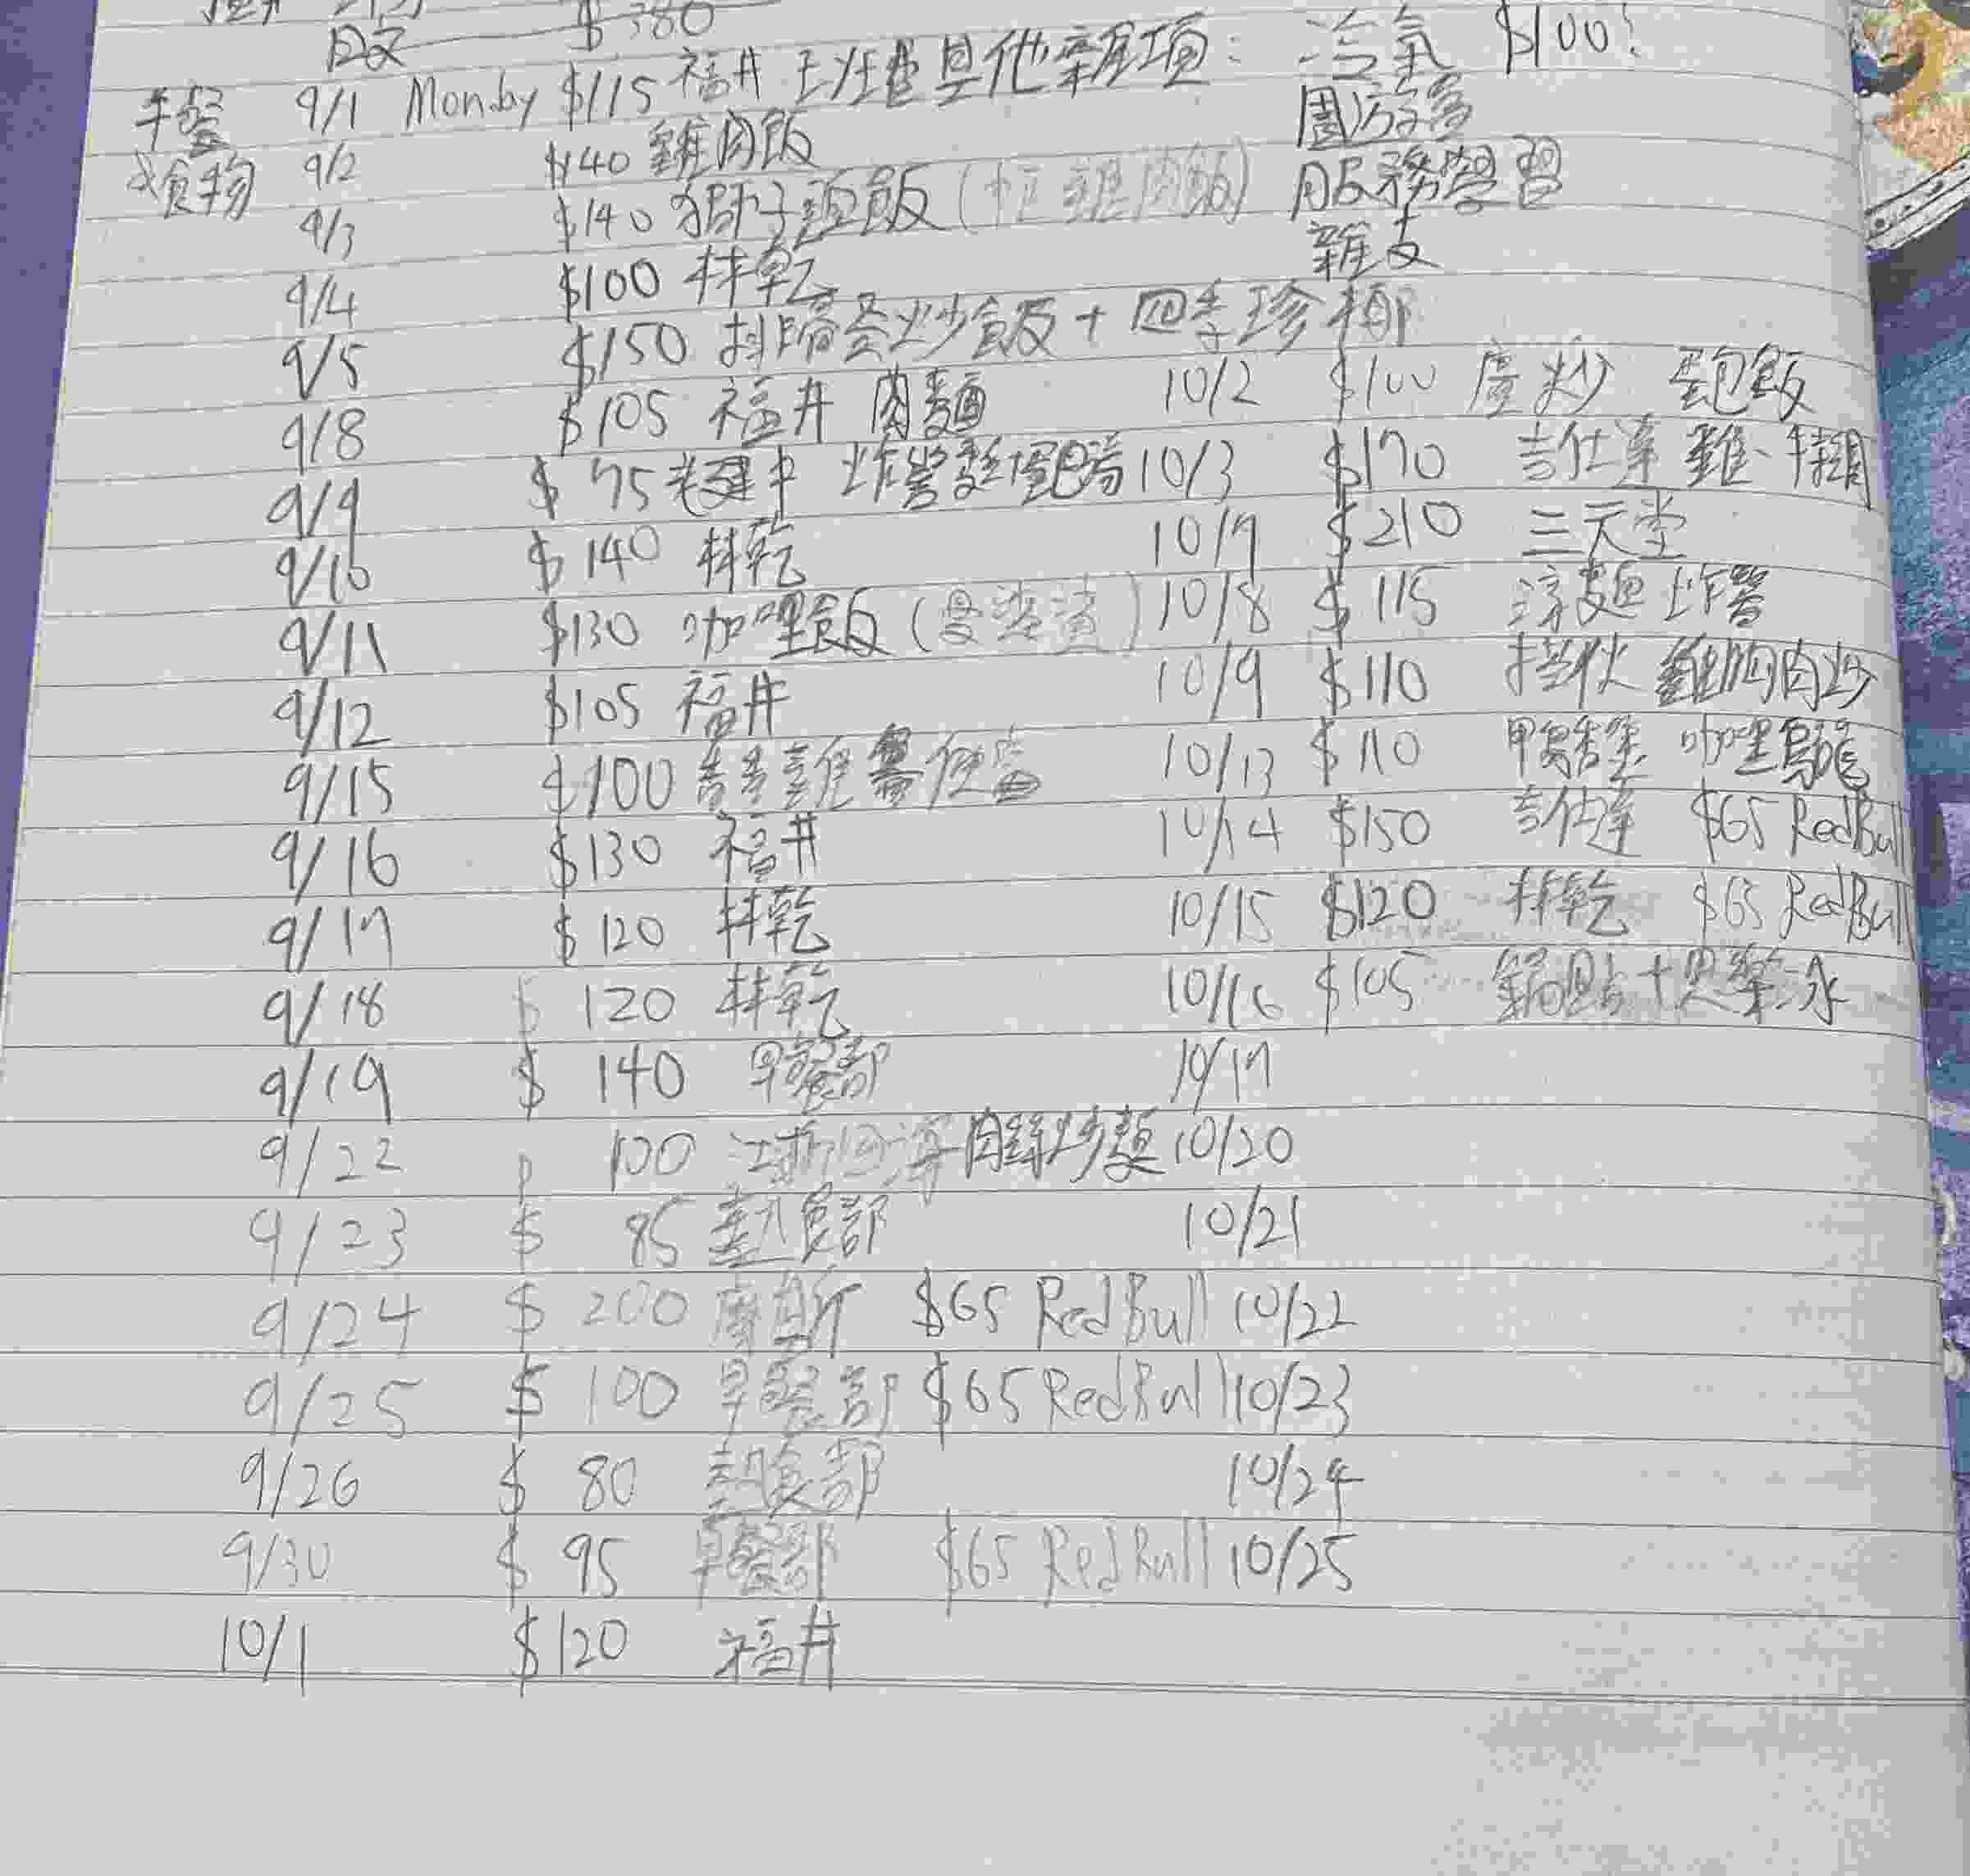 日文 $380
午餐 9/1 Monday $115 福井 班費其他雜項: 冷氣 $100?
食物 9/2 $140 雞肉飯 園遊會
9/3 $140 獅子頭飯 (雞肉飯) 服務學習
9/4 $100 拌乾 雜支
9/5 $150 炒飯 + 四季珍椰
9/8 $105 福井 肉麵 10/2 $100 廣炒 蛋包飯
9/9 $75 老建中 炸醬麵 10/3 $170 吉仕達 雞
9/10 $140 拌乾 10/7 $210 三元堂
9/11 $130 咖哩飯 10/8 $115 涼麵 炸醬
9/12 $105 福井 10/9 $110 雞胸肉炒
9/15 $100 雞 便當 10/13 $110 咖哩烏龍
9/16 $130 福井 10/14 $150 吉仕達 $65 RedBull
9/17 $120 拌乾 10/15 $120 拌乾 $65 RedBull
9/18 $120 拌乾 10/16 $105 鍋貼+思樂冰
9/19 $140 早餐部 10/17
9/22 100 肉絲炒麵 10/20
9/23 $85 熱食部 10/21
9/24 $200 摩斯 $65 RedBull 10/22
9/25 $100 早餐部 $65 RedBull 10/23
9/26 $80 熱食部 10/24
9/30 $95 早餐部 $65 RedBull 10/25
10/1 $120 福井